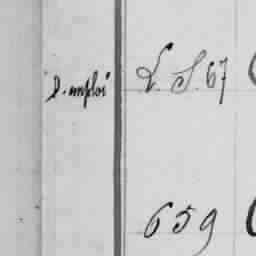 S. emploi
L. S. 67
659